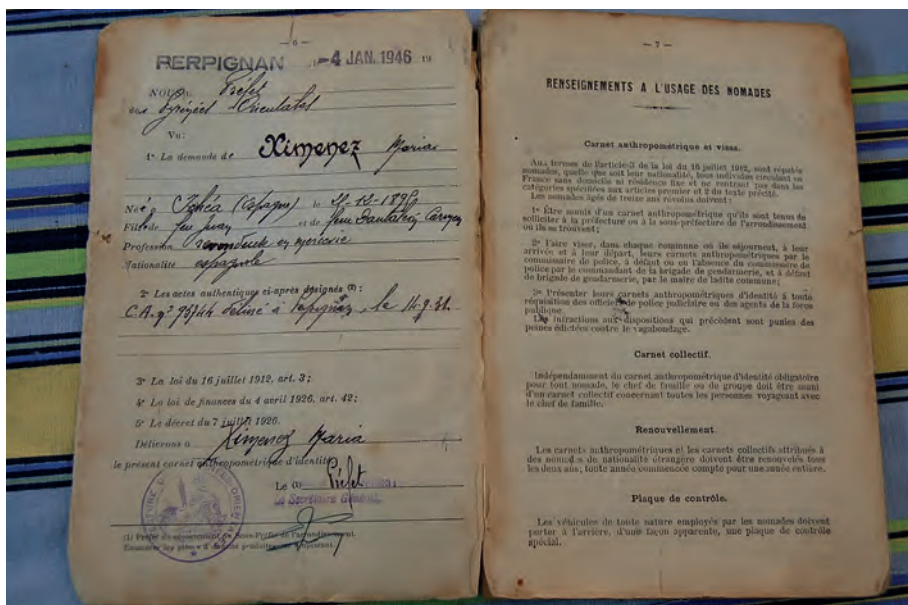 — 6 —
PERPIGNAN — 4 JAN. 1946 19
NOUS, Préfet
des Pyrénées Orientales
Vu:
1° La demande de Ximenez Maria
Né à (Espagne) le
Fils de feu Juan et de feu
Profession revendeuse en mercerie
Nationalité espagnole
2° Les actes authentiques ci-après désignés (1):
C.A. n° délivré à Perpignan, le 14.9.31.
3° La loi du 16 juillet 1912, art. 3;
4° La loi de finances du 4 avril 1926, art. 42;
5° Le décret du 7 juillet 1926.
Délivrons à Ximenez Maria
le présent carnet anthropométrique d'identité.
Le (1) Préfet
Le Secrétaire Général,
(1) Préfet du département ou Sous-Préfet de l'arrondissement.
— 7 —
RENSEIGNEMENTS A L'USAGE DES NOMADES
Carnet anthropométrique et visas.
Aux termes de l'article 3 de la loi du 16 juillet 1912, sont réputés
nomades, quelle que soit leur nationalité, tous individus circulant en
France sans domicile ni résidence fixe et ne rentrant pas dans les
catégories spécifiées aux articles premier et 2 du texte précité.
Les nomades âgés de treize ans révolus doivent :
1° Être munis d'un carnet anthropométrique qu'ils sont tenus de
solliciter à la préfecture ou à la sous-préfecture de l'arrondissement
où ils se trouvent;
2° Faire viser, dans chaque commune où ils séjournent, à leur
arrivée et à leur départ, leurs carnets anthropométriques par le
commissaire de police, à défaut ou en l'absence du commissaire de
police par le commandant de la brigade de gendarmerie, et à défaut
de brigade de gendarmerie, par le maire de ladite commune;
3° Présenter leurs carnets anthropométriques d'identité à toute
réquisition des officiers de police judiciaire ou des agents de la force
publique.
Les infractions aux dispositions qui précèdent sont punies des
peines édictées contre le vagabondage.
Carnet collectif.
Indépendamment du carnet anthropométrique d'identité obligatoire
pour tout nomade, le chef de famille ou de groupe doit être muni
d'un carnet collectif concernant toutes les personnes voyageant avec
le chef de famille.
Renouvellement.
Les carnets anthropométriques et les carnets collectifs attribués à
des nomades de nationalité étrangère doivent être renouvelés tous
les deux ans; toute année commencée compte pour une année entière.
Plaque de contrôle.
Les véhicules de toute nature employés par les nomades doivent
porter à l'arrière, d'une façon apparente, une plaque de contrôle
spécial.